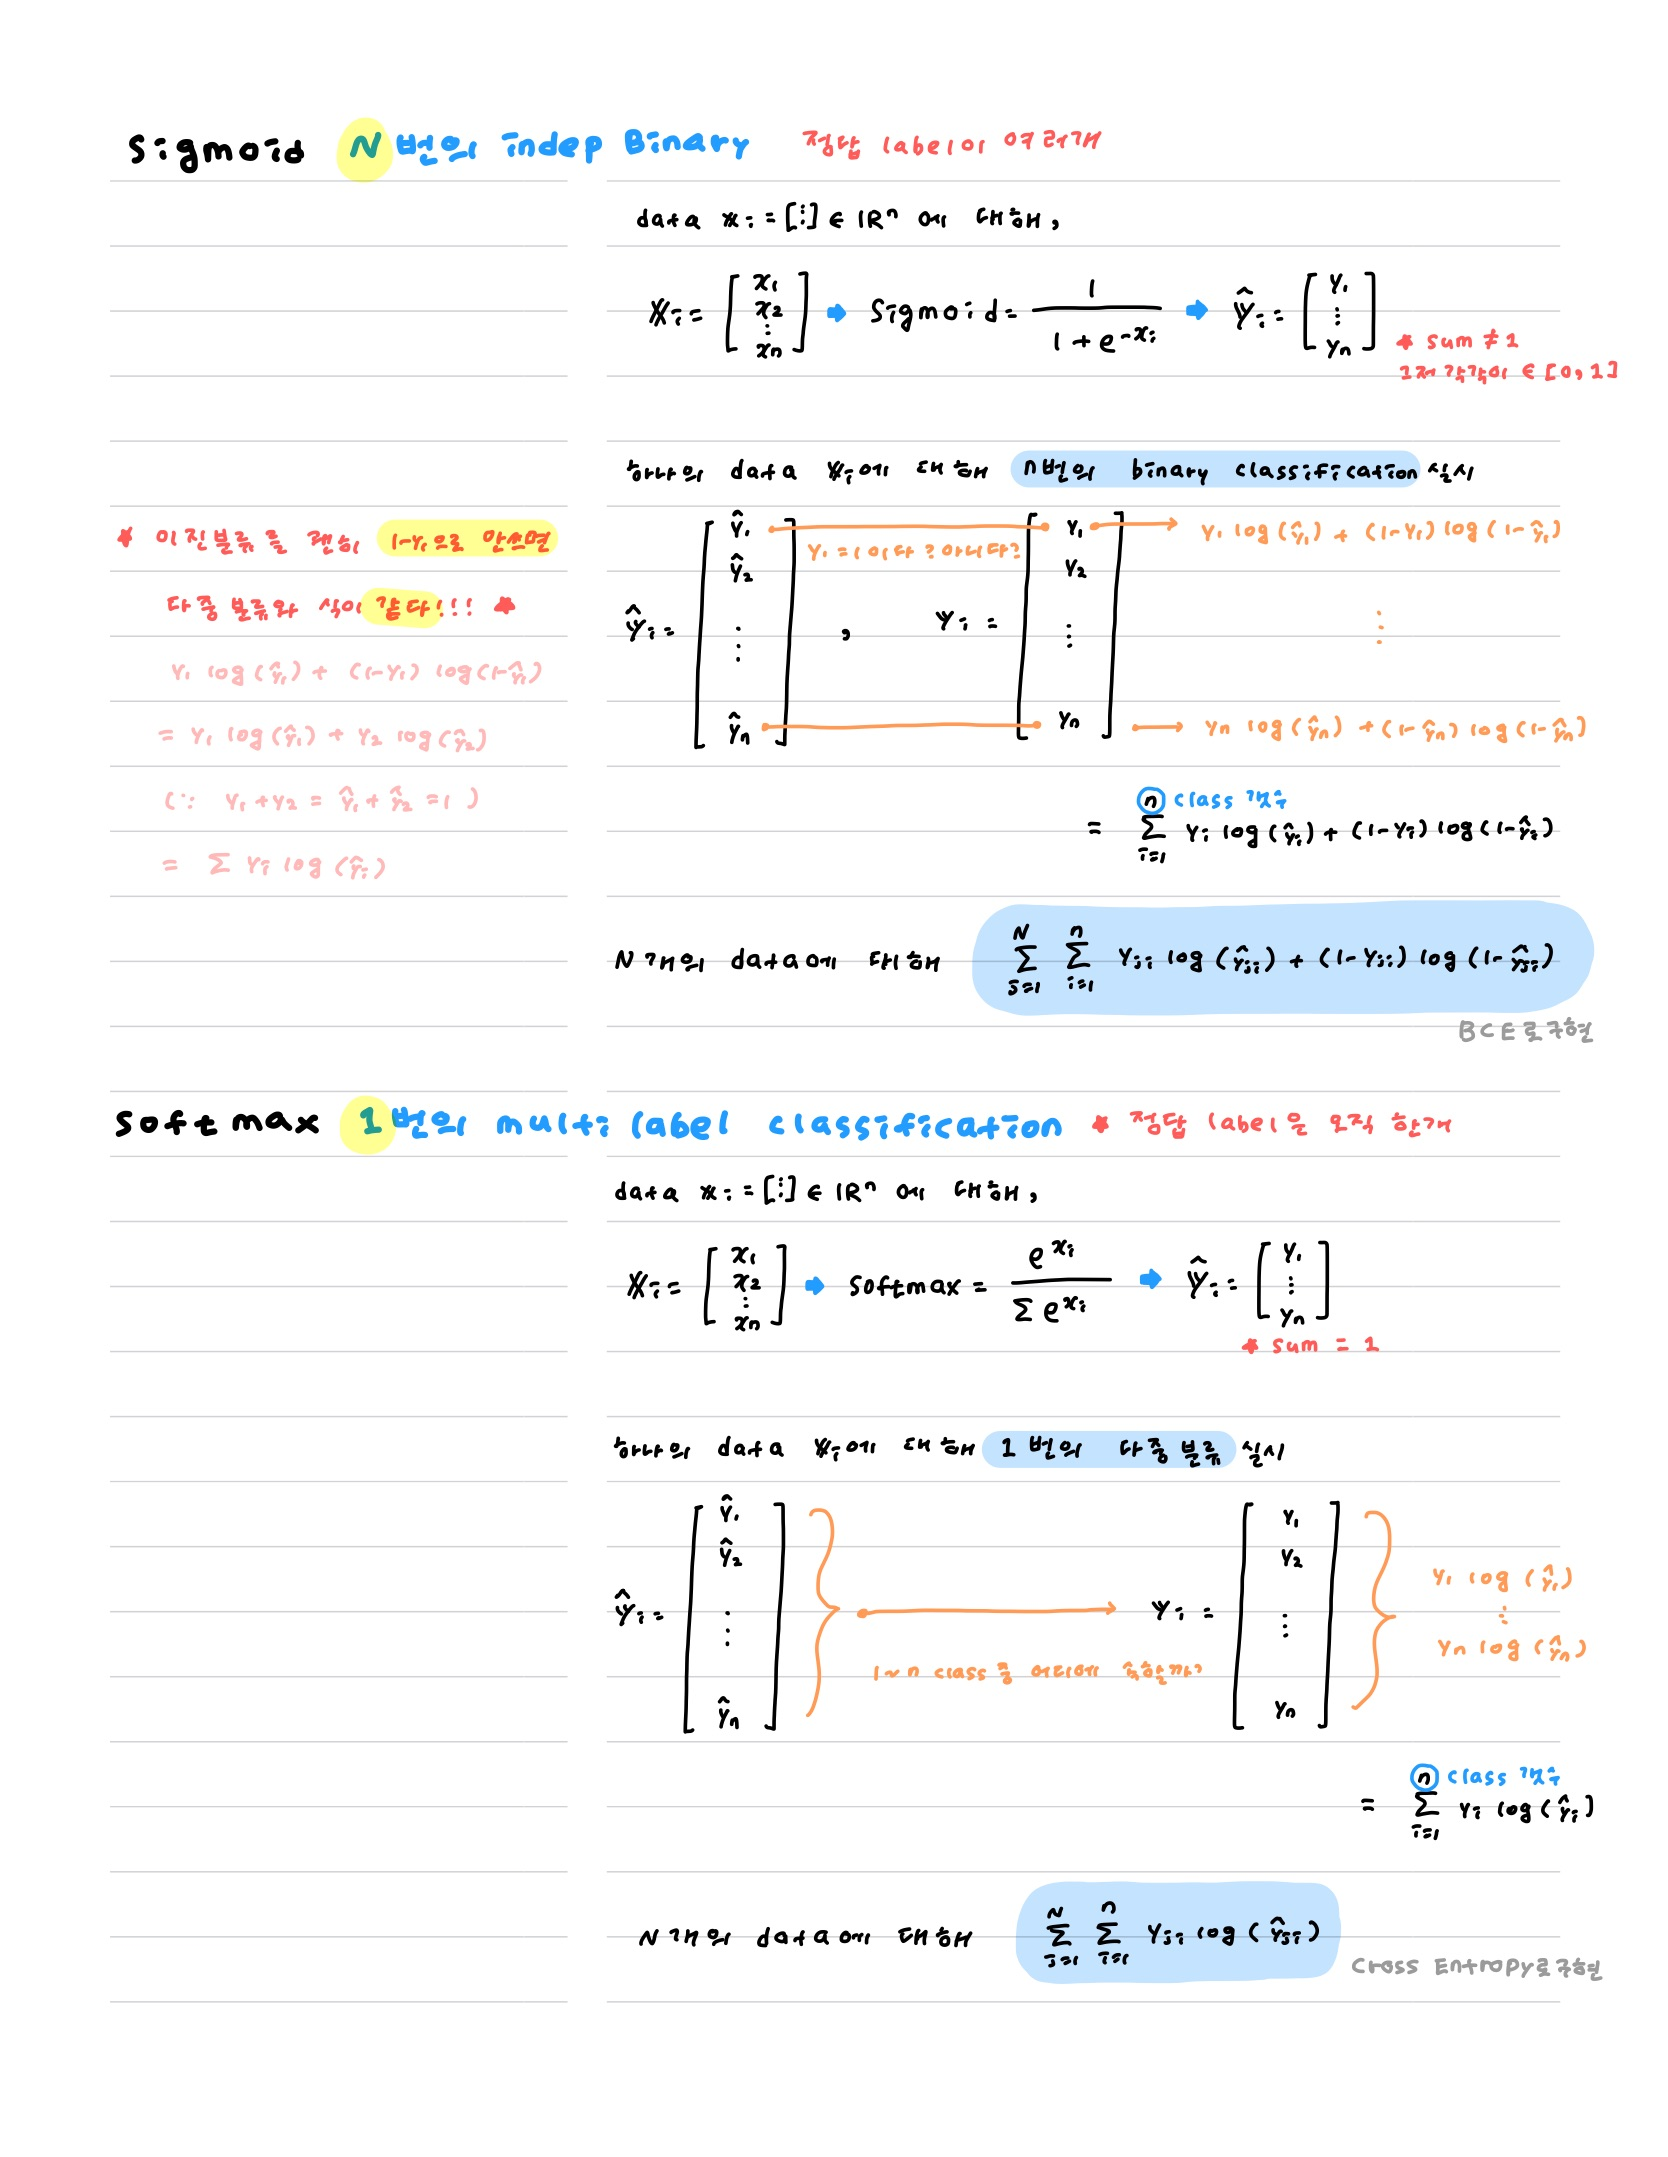 Sigmoid N번의 indep Binary 정답 label이 여러개
data 𝕏i = [⋮] ∈ ℝⁿ 에 대해,
𝕏i = [x₁ x₂ ⋮ xn] ➡ Sigmoid = 1 / (1 + e^(-xi)) ➡ Ŷi = [y₁ ⋮ yn]
★ sum ≠ 1
그저 각각이 ∈ [0, 1]
하나의 data 𝕏i에 대해 n번의 binary classification 실시
★ 이진분류를 괜히 1-y₁으로 안쓰면
다중분류와 식이 같다!!! ★
y₁ log(ŷ₁) + (1-y₁) log(1-ŷ₁)
= y₁ log(ŷ₁) + y₂ log(ŷ₂)
(∵ y₁+y₂ = ŷ₁+ŷ₂ =1 )
= Σ yi log(ŷi)
Ŷi = [ŷ₁ ŷ₂ ⋮ ŷn] , Yi = [y₁ y₂ ⋮ yn]
y₁ = 1 이다? 아니다?
y₁ log(ŷ₁) + (1-y₁) log(1-ŷ₁)
⋮
yn log(ŷn) + (1-ŷn) log(1-ŷn)
n class 갯수
= Σ_{i=1}^{n} yi log(ŷi) + (1-yi) log(1-ŷi)
N개의 data에 대해 Σ_{j=1}^{N} Σ_{i=1}^{n} yji log(ŷji) + (1-yji) log(1-ŷji)
BCE로구현
Softmax 1번의 multi label classification ★ 정답 label은 오직 한개
data 𝕏i = [⋮] ∈ ℝⁿ 에 대해,
𝕏i = [x₁ x₂ ⋮ xn] ➡ Softmax = e^(xi) / Σ e^(xi) ➡ Ŷi = [y₁ ⋮ yn]
★ sum = 1
하나의 data 𝕏i에 대해 1번의 다중분류 실시
Ŷi = [ŷ₁ ŷ₂ ⋮ ŷn] → Yi = [y₁ y₂ ⋮ yn]
1~n class중 어디에 속할까?
y₁ log(ŷ₁)
⋮
yn log(ŷn)
n class 갯수
= Σ_{i=1}^{n} yi log(ŷi)
N개의 data에 대해 Σ_{j=1}^{N} Σ_{i=1}^{n} yji log(ŷji)
Cross Entropy로구현